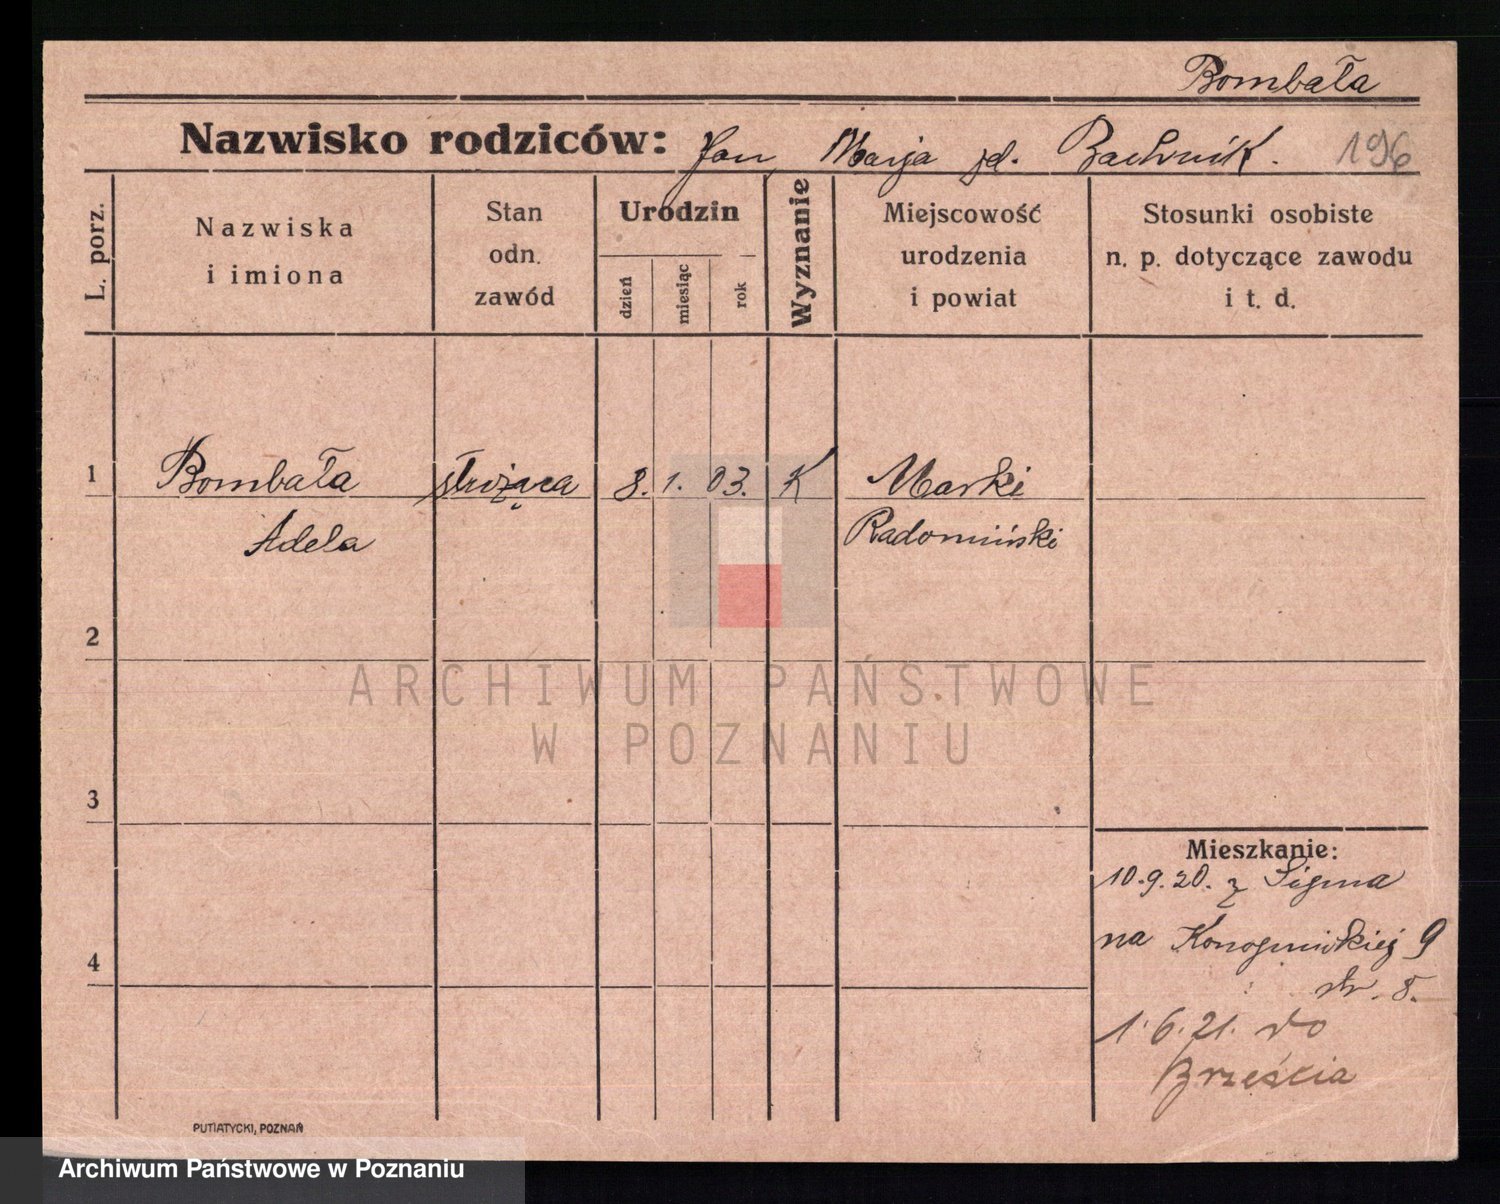 Bombała
Nazwisko rodziców: Jan, Marja zd. 196
L. porz.
Nazwiska
i imiona
Stan
odn.
zawód
Urodzin
dzień
miesiąc
rok
Wyznanie
Miejscowość
urodzenia
i powiat
Stosunki osobiste
n. p. dotyczące zawodu
i t. d.
1 Bombała służąca 8. 1. 03. K Marki
Adela Radomiński
2
3
4
Mieszkanie:
10.9.20. z
na 9
str. 8.
1.6.21. do
Brześcia
PUTIATYCKI, POZNAŃ
ARCHIWUM PAŃSTWOWE
W POZNANIU
Archiwum Państwowe w Poznaniu